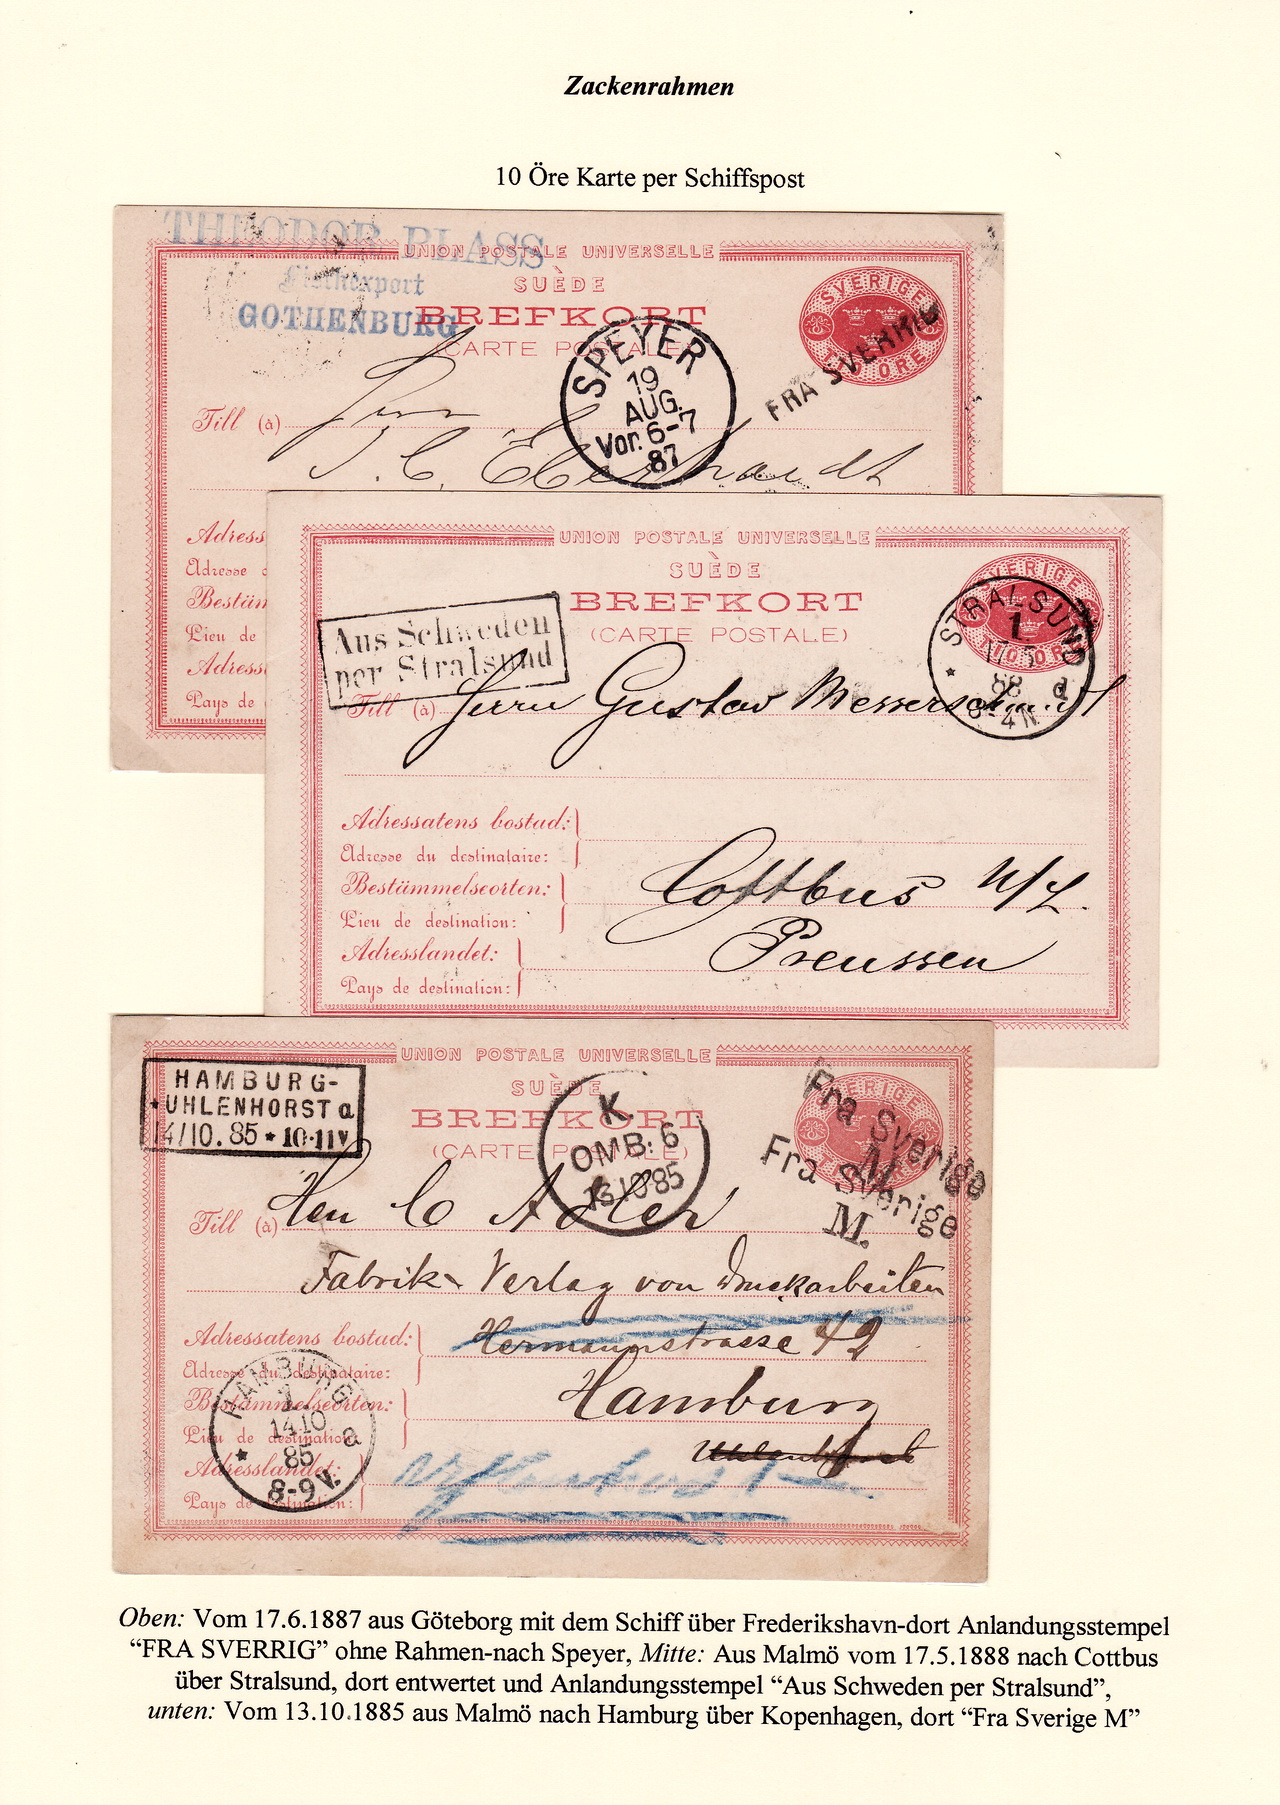 Zackenrahmen
10 Öre Karte per Schiffspost
THEODOR PLASS
Fischexport
GOTHENBURG
UNION POSTALE UNIVERSELLE
SUÈDE
BREFKORT
CARTE POSTALE
SVERIGE
ÖRE
FRA SVERRIG
SPEYER
19
AUG.
Vor. 6-7
87
Till (à)
Herrn
J. C. Eberhardt
Adress
Adresse
Bestäm
Lieu de
Adress
Pays de
UNION POSTALE UNIVERSELLE
SUÈDE
BREFKORT
(CARTE POSTALE)
SVERIGE
TIO ÖRE
STRALSUND
1
17 5
88 d
3-4 N
Aus Schweden
per Stralsund
Till (à) Herrn Gustav Messerschmidt
Adressatens bostad:
Adresse du destinataire:
Bestämmelseorten:
Lieu de destination:
Cottbus N/L.
Adresslandet:
Preussen
Pays de destination:
UNION POSTALE UNIVERSELLE
SUÈDE
BREFKORT
(CARTE POSTALE)
SVERIGE
HAMBURG-
* UHLENHORST a
14/10. 85 * 10-11V
K
OMB: 6
13.10.85
Fra Sverige
M.
Fra Sverige
M.
Till (à) Herrn C Adler
Fabrik & Verlag von Druckarbeiten
Adressatens bostad:
Hermannstrasse 42
Adresse du destinataire:
Hamburg
Bestämmelseorten:
Lieu de destination:
Uhlenhorst
Adresslandet:
Uhlenhorst
Pays de destination:
HAMBURG
1.
14.10
85 a
8-9V.
Oben: Vom 17.6.1887 aus Göteborg mit dem Schiff über Frederikshavn-dort Anlandungsstempel
“FRA SVERRIG” ohne Rahmen-nach Speyer, Mitte: Aus Malmö vom 17.5.1888 nach Cottbus
über Stralsund, dort entwertet und Anlandungsstempel “Aus Schweden per Stralsund”,
unten: Vom 13.10.1885 aus Malmö nach Hamburg über Kopenhagen, dort “Fra Sverige M”